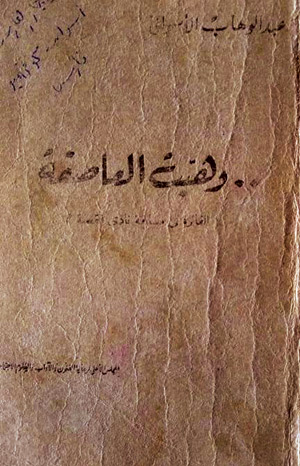 عبد الوهاب الأسواني
وهبت العاصفة ..
الفائزة فى مسابقة نادى القصة
المجلس الأعلى لرعاية الفنون والآداب والعلوم الاجتماعية